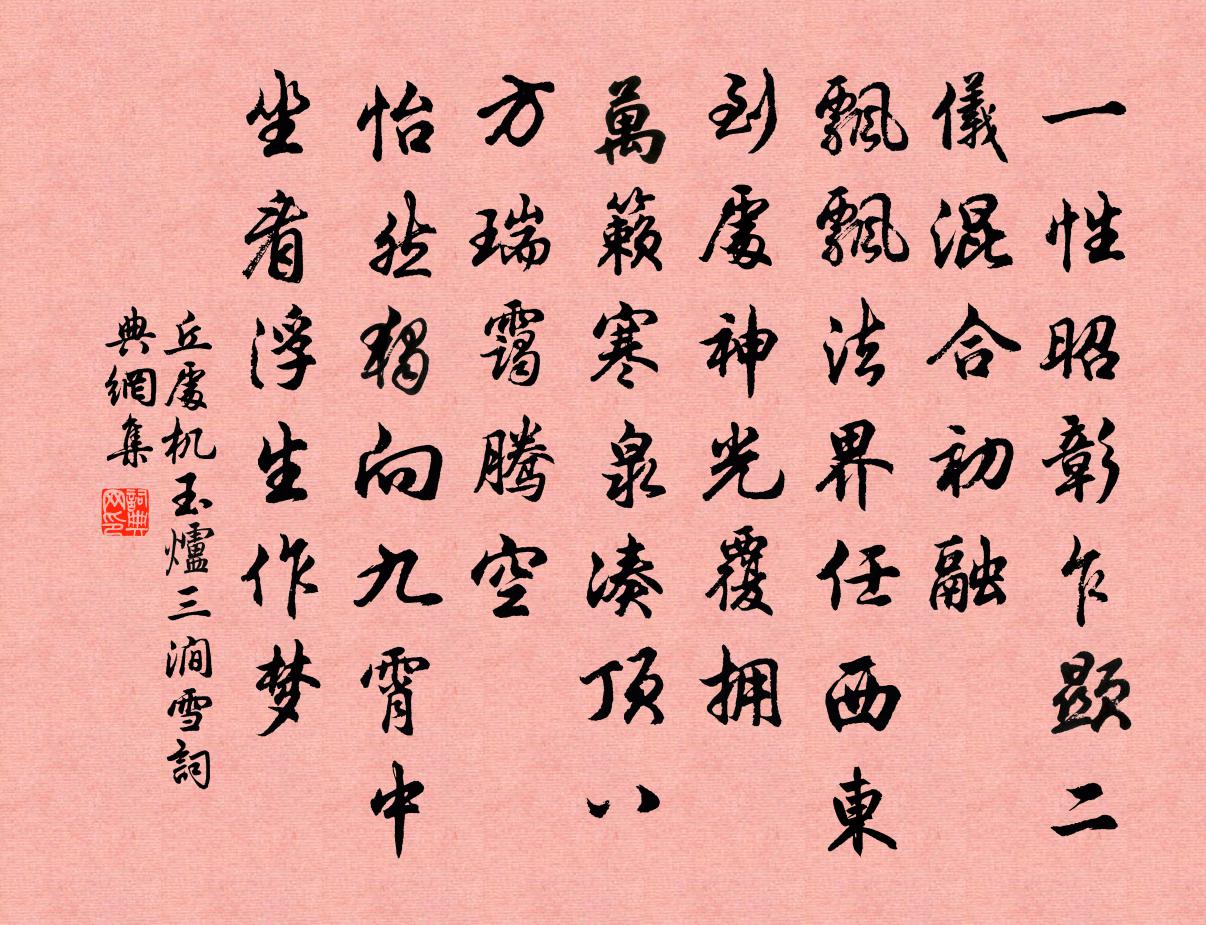 一性昭彰乍顯二
儀混合初融
飄飄法界任西東
到處神光覆拥
萬籟寒泉湊頂八
方瑞靄腾空
怡然独向九霄中
坐看浮生作梦
丘處机玉爐三澗雪詞
典網集
詞典网印